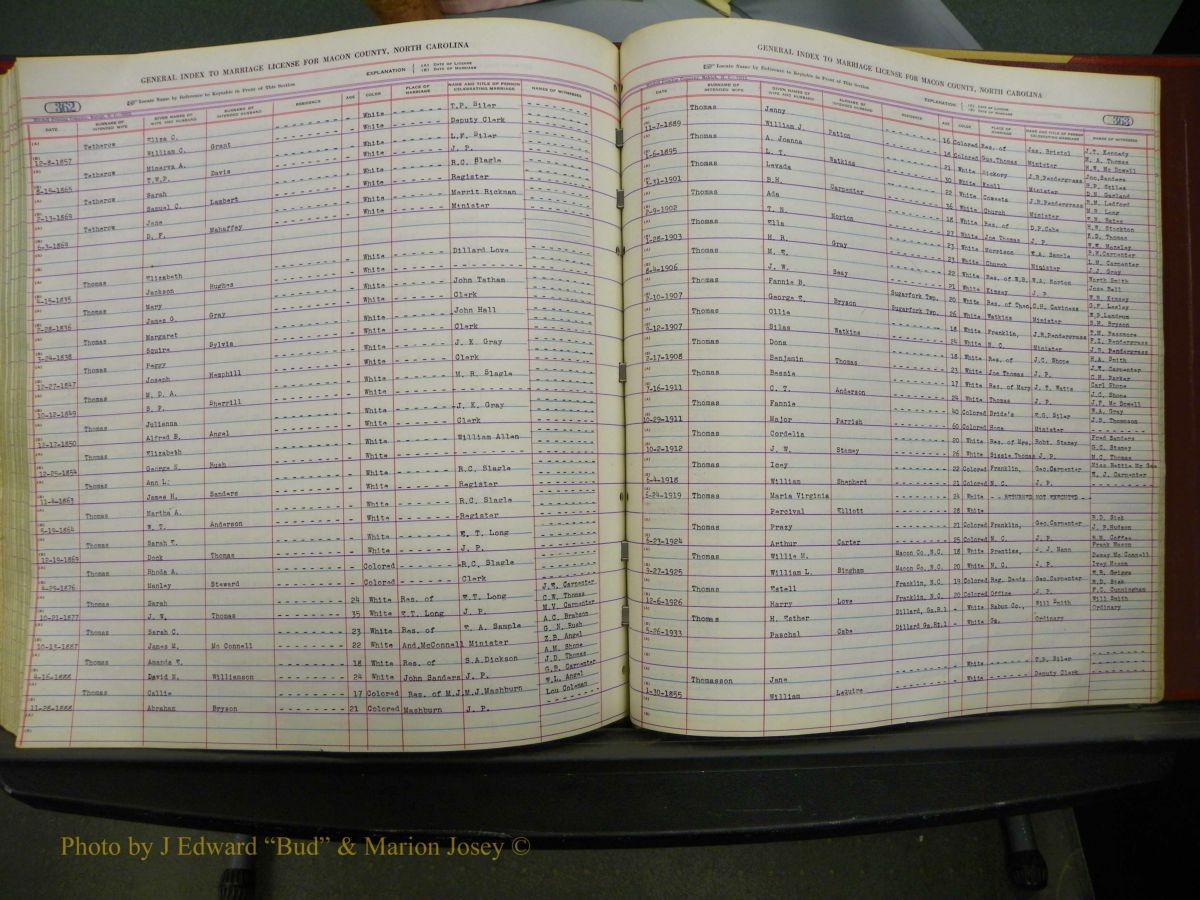 GENERAL INDEX TO MARRIAGE LICENSE FOR MACON COUNTY, NORTH CAROLINA
362
Locate Name by Reference to Keytable in Front of This Section
EXPLANATION (A) DATE OF LICENSE
(B) DATE OF MARRIAGE
DATE SURNAME OF INTENDED WIFE GIVEN NAMES OF WIFE AND HUSBAND SURNAME OF INTENDED HUSBAND RESIDENCE AGE COLOR PLACE OF MARRIAGE NAME AND TITLE OF PERSON CELEBRATING MARRIAGE NAMES OF WITNESSES
Tetherow Eliza C. White T.P. Siler
12-8-1857 William C. Grant White Deputy Clerk
Tetherow Minerva A. White L.F. Siler
T.W.P. Davis White J. P.
Tetherow Sarah White R.C. Slagle
2-13-1869 Samuel C. Lambert White Register
Tetherow Jane White Merrit Rickman
6-3-1869 D. F. Mahaffey White Minister
Thomas Elizabeth White Dillard Love
4-15-1835 Jackson Hughes White
Thomas Mary White John Tatham
7-28-1836 James G. Gray White Clerk
Thomas Margaret White John Hall
3-24-1838 Squire Sylvis White Clerk
Thomas Peggy White J. K. Gray
12-27-1847 Joseph Hemphill White Clerk
Thomas M. D. A. White M. R. Slagle
10-12-1849 B. P. Sherrill White
Thomas Julianna White J. K. Gray
12-17-1850 Alfred B. Angel White Clerk
Thomas Elizabeth White William Allen
12-25-1854 George N. Bush White
Thomas Ann L. White R.C. Slagle
11-4-1863 James H. Sanders White Register
Thomas Martha A. White R.C. Slagle
5-19-1864 W. T. Anderson White Register
Thomas Sarah E. White E. T. Long
12-19-1869 Dock Thomas White J. P.
Thomas Rhoda A. Colored R.C. Slagle
Manley Steward Colored Clerk
Thomas Sarah 24 White Res. of E.T. Long J.W. Carpenter
10-21-1877 J. W. Thomas 35 White E.T. Long J. P. C.W. Thomas
M.V. Carpenter
Thomas Sarah C. 23 White Res. of E. A. Sample A.C. Brabson
G. N. Rush
10-13-1887 James M. Mc Connell 22 White And.McConnell Minister Z.B. Angel
Thomas Amanda E. 18 White Res. of S.A.Dickson A.M. Shope
J.D. Thomas
4-16-1888 David N. Williamson 24 White John Sanders J. P. G.R. Carpenter
Thomas Callie 17 Colored Res. of M.J. M.J.Mashburn W.L. Angel
Lou Coleman
11-28-1888 Abraham Bryson 21 Colored Mashburn J. P.
GENERAL INDEX TO MARRIAGE LICENSE FOR MACON COUNTY, NORTH CAROLINA
363
Locate Name by Reference to Keytable in Front of This Section
EXPLANATION (A) DATE OF LICENSE
(B) DATE OF MARRIAGE
DATE SURNAME OF INTENDED WIFE GIVEN NAMES OF WIFE AND HUSBAND SURNAME OF INTENDED HUSBAND RESIDENCE AGE COLOR PLACE OF MARRIAGE NAME AND TITLE OF PERSON CELEBRATING MARRIAGE NAMES OF WITNESSES
Thomas Jenny 16 Colored Res. of Jas. Bristol J.T. Kennedy
11-7-1889 William J. Patton 18 Colored Gus.Thomas Minister M. A. Thomas
W.W. Mc Dowell
Thomas A. Joanna 21 White Hickory J.R.Pendergrass Jno.Sanders
L. T. Watkins 30 White Knoll Minister S.P. Stiles
D.N. Garland
Thomas Levada 22 White Coweeta J.R.Pendergrass R.M. Ledford
B.H. Carpenter 36 White Church Minister M.R. Long
Thomas Ada 18 White Res. of D.P.Cabe H.W. Stockton
2-9-1902 T. N. Norton 27 White Joe Thomas J. P. E.D. Thomas
Thomas Ella 23 White Morrison E.A. Sample W.W. Moseley
P.M.Carpenter
M. R. Gray 23 White Church Minister L.M. Carpenter
J.J. Gray
Thomas M. E. 22 White Res. of W.B. W.A. Norton North Smith
8-4-1906 J. W. Seay 21 White Kimsey J. P. Jose Bell
W.B. Kimsey
Thomas Fannie B. Sugarfork Twp. 20 White Res. of Theo. C.H. Gaviness
George T. Bryson Sugarfork Twp. 26 White Watkins Minister
S.M. Bryson
Thomas Ollie 18 White Franklin, J.R.Pendergrass T.M. Passmore
Silas Watkins 24 White N. C. Minister
J.R. Pendergrass
Thomas Dona 18 White Res. of J.C. Shope H.A. Smith
2-17-1908 Benjamin Thomas 23 White Joe Thomas J. P. J.W. Carpenter
C.H. Parker
Thomas Bessie 17 White Res. of Mary J. T. Watts Carl Shope
J.C. Shope
7-16-1911 C. T. Anderson 24 White Thomas J. P. J.F. Mc Dowell
Thomas Fannie 40 Colored Bride's E.G. Siler W.A. Gray
10-29-1911 Major Parrish 60 Colored Home Minister J.D. Thompson
Thomas Cordelia 20 White Res. of Mrs. Robt. Stamey Fred Sanders
10-2-1912 J. W. Stamey 26 White Sissie Thomas J. P. G.C. Stamey
N.C. Thomas
Thomas Icey 22 Colored Franklin, Geo.Carpenter
6-4-1918 William Shepherd 21 Colored N. C. J. P. W. J. Carpenter
Thomas Maria Virginia 24 White RETURNED NOT EXECUTED
6-24-1919 Percival Elliott 28 White
Thomas Praxy 21 Colored Franklin, Geo.Carpenter R.D. Sisk
6-23-1924 Arthur Carter 25 Colored N. C. J. P. J. P.Hudson
R.M. Coffee
Thomas Willie M. Macon Co.,N.C. 18 White Prentiss, J. J. Mann Frank Mason
Dewey Mc Connell
3-27-1925 William L. Bingham Macon Co.,N.C. 20 White N. C. J. P. Ivey Mason
Thomas Estell Franklin, N.C. 19 Colored Reg. Deeds Geo.Carpenter
R.D. Sisk
12-6-1926 Harry Love Franklin, N.C. 20 Colored Office J. P. F.C. Cunningham
Thomas H. Esther Dillard, Ga.R.1 White Rabun Co., Will Smith Will Smith
5-26-1933 Paschal Cabe Dillard Ga.Rt.1 White Ga. Ordinary Ordinary
Thomasson Jane White T.P. Siler
1-30-1855 William Lequire White Deputy Clerk
Photo by J Edward “Bud” & Marion Josey ©